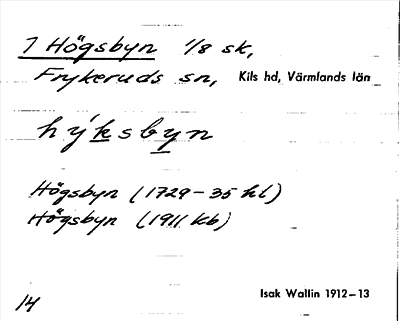 7 Högsbyn 1/8 sk,
Frykeruds sn, Kils hd, Värmlands län
hýksbyn
Högsbyn (1729-35 hl)
Högsbyn (1911 kb)
Isak Wallin 1912-13
14